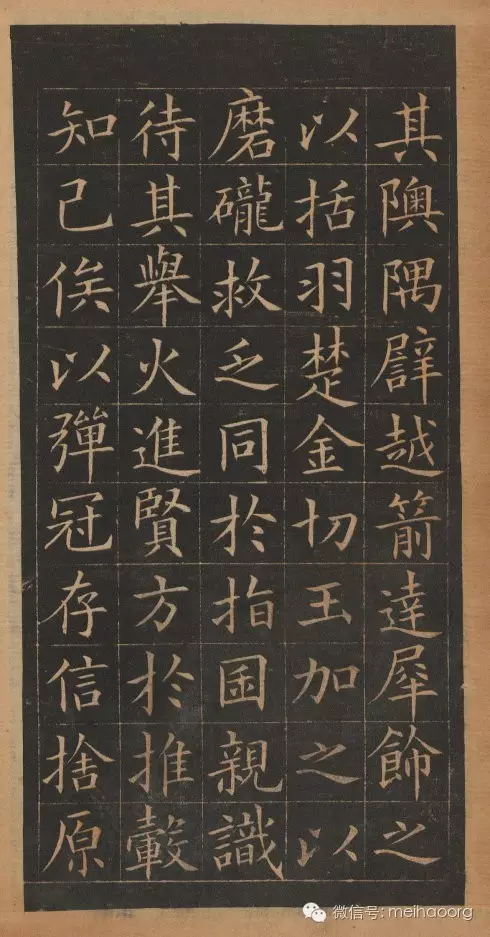 其隩隅譬越箭達犀飾之
以括羽楚金切玉加之以
磨礲救乏同於指囷親識
待其舉火進賢方於推轂
知己俟以彈冠存信捨原
微信号: meihaoorg